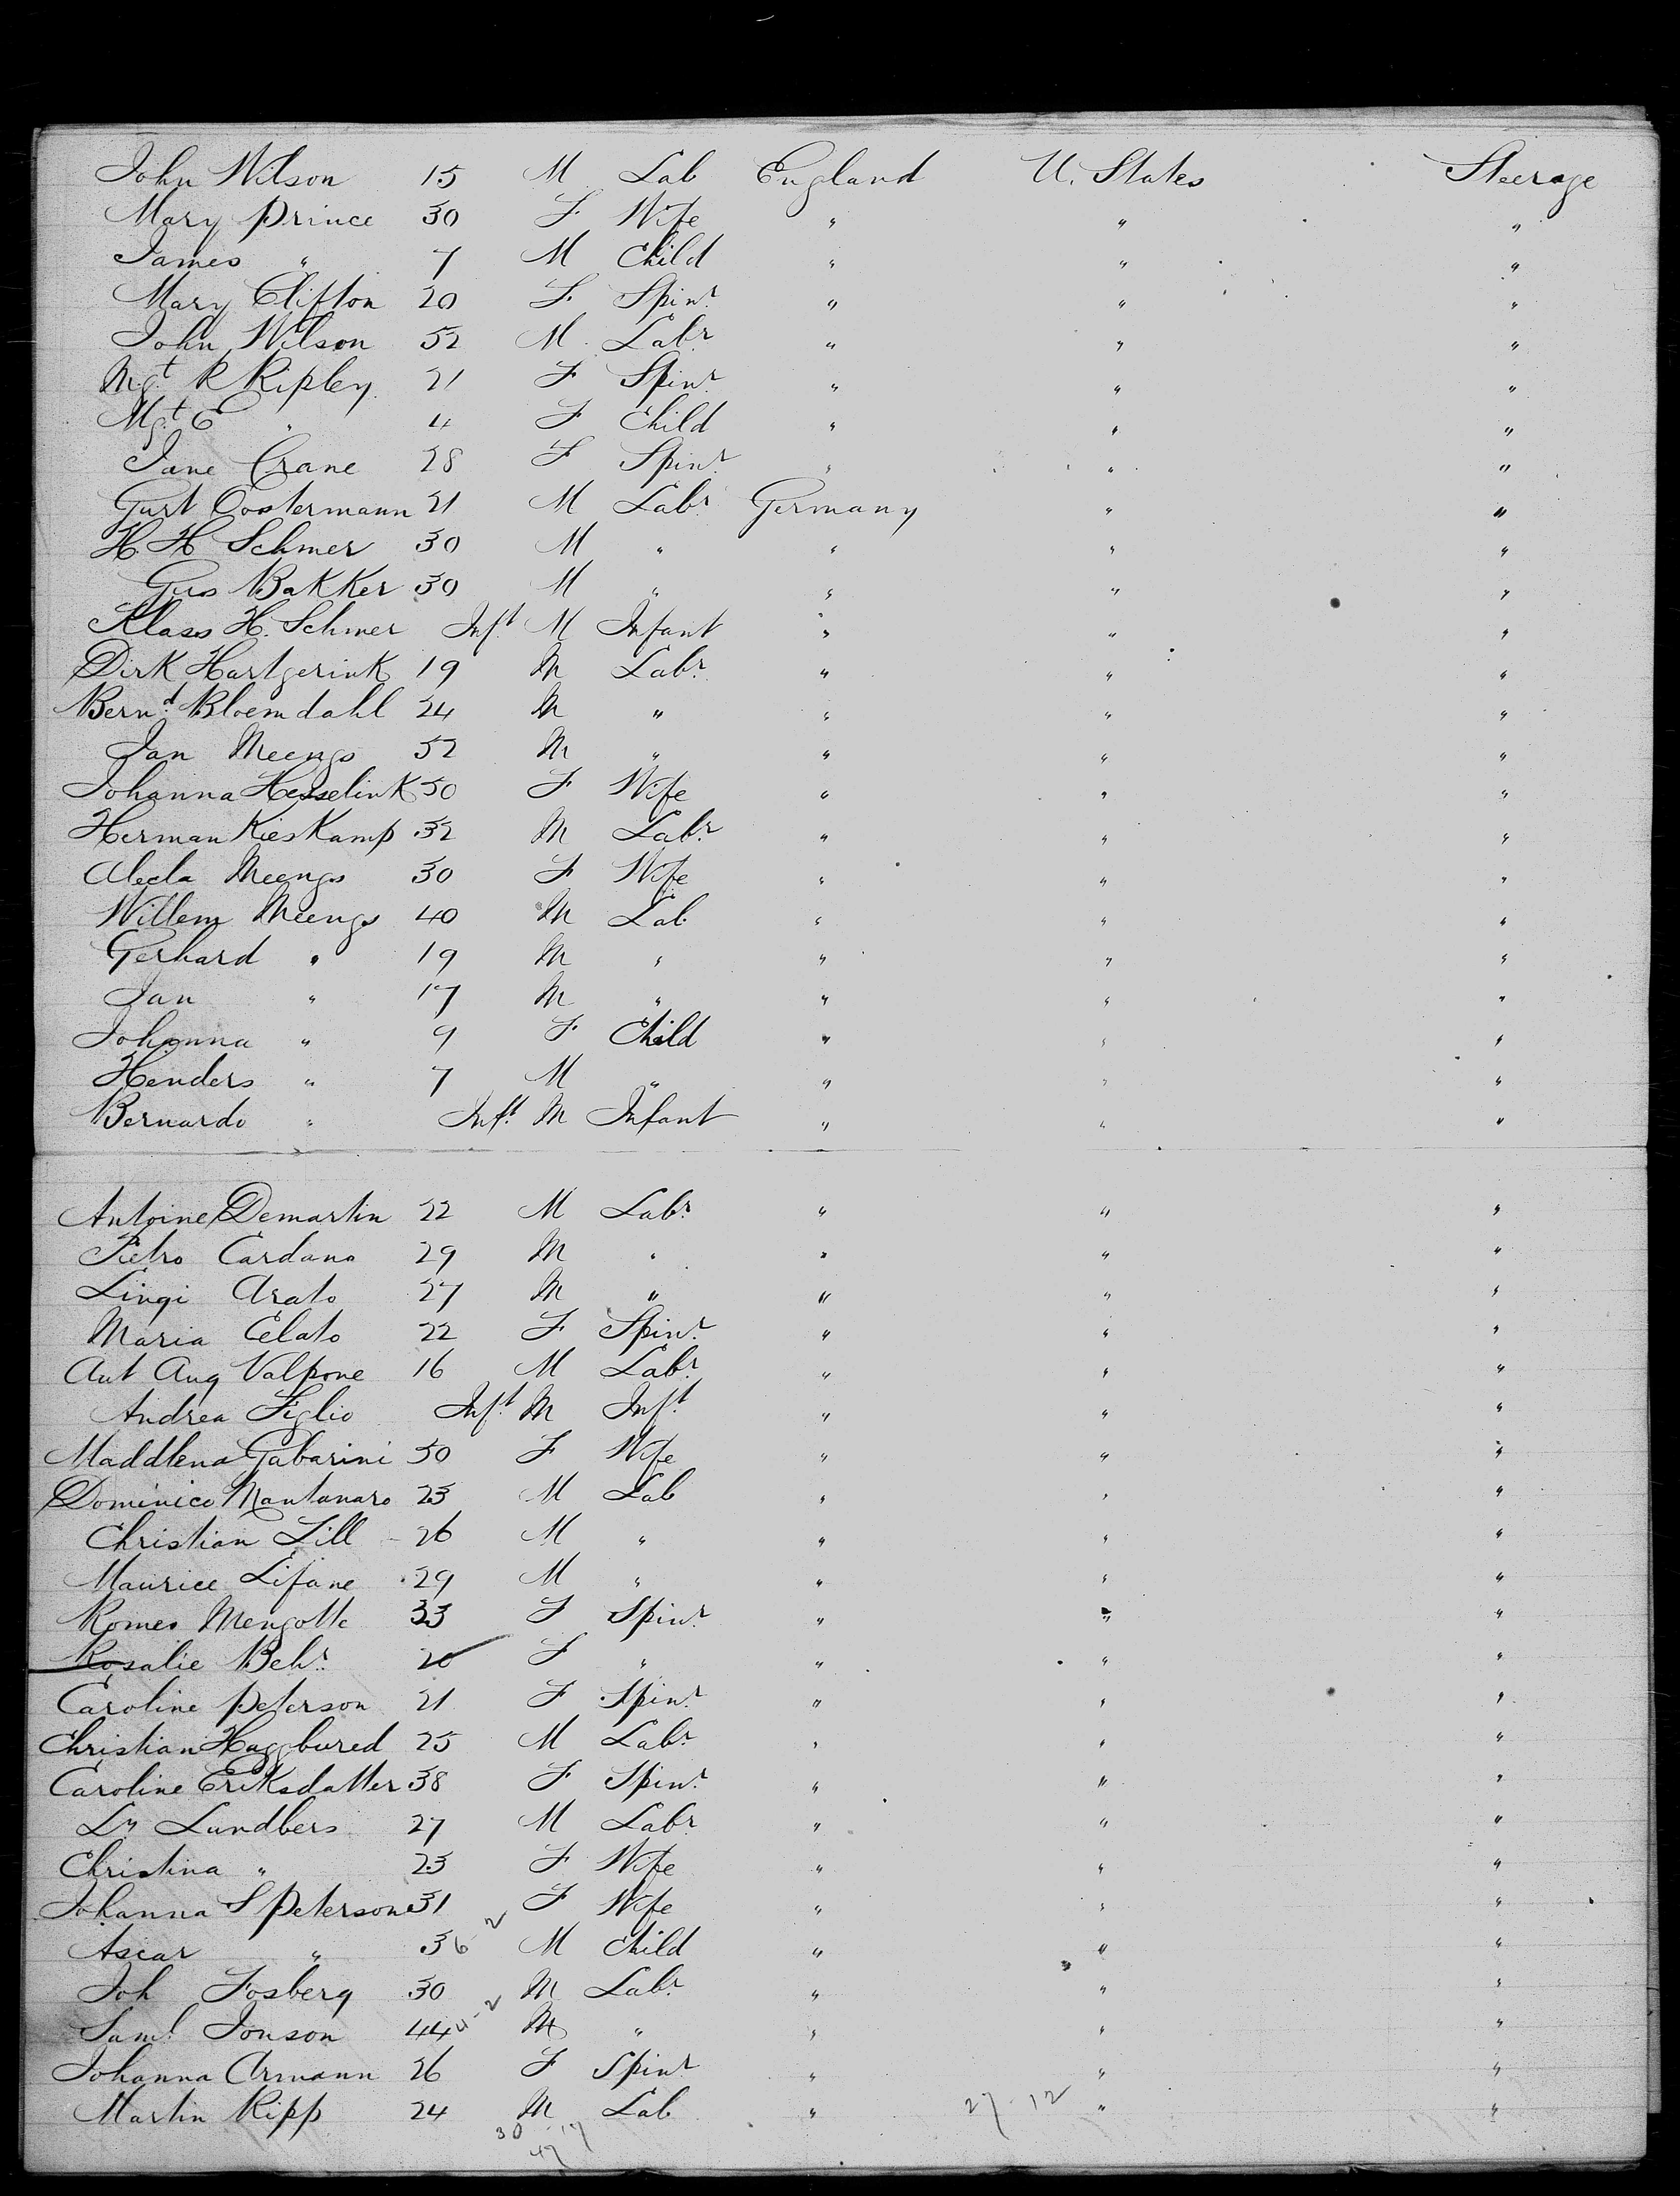 John Wilson 15 M Lab England U. States Steerage
Mary Prince 30 F Wife " " "
James " 7 M Child " " "
Mary Clifton 20 F Spinr " " "
John Wilson 52 M Labr " " "
Mgt R Ripley 21 F Spinr " " "
Mgt E " 4 F Child " " "
Jane Crane 28 F Spinr " " "
Gurt Oostermann 21 M Labr Germany " "
H H Schmer 30 M " " " "
Gus Bakker 30 M " " " "
Klass H. Schmer Inft M Infant " " "
Dirk Hartgerink 19 M Labr " " "
Bernd Bloemdahl 24 M " " " "
Jan Meengs 52 M " " " "
Johanna Hesselink 50 F Wife " " "
Herman Kieskamp 32 M Labr " " "
Aleda Meengs 30 F Wife " " "
Willem Meengs 40 M Lab " " "
Gerhard " 19 M " " " "
Jan " 17 M " " " "
Johanna " 9 F Child " " "
Henders " 7 M " " " "
Bernardo " Inft M Infant " " "
Antoine Demartin 22 M Labr " " "
Pietro Cardano 29 M " " " "
Lingi Arato 27 M " " " "
Maria Celato 22 F Spinr " " "
Ant Aug Valpone 16 M Labr " " "
Andrea Figlio Inft M Inft " " "
Maddlena Gabarini 50 F Wife " " "
Dominico Mantanaro 23 M Lab " " "
Christian Lill 26 M " " " "
Maurice Lifane 29 M " " " "
Romeo Mengotte 33 F Spinr " " "
Rosalie Behr 20 F " " " "
Caroline Peterson 21 F Spinr " " "
Christian Haggbured 25 M Labr " " "
Caroline Eriksdatter 38 F Spinr " " "
Lrs Lundbers 27 M Labr " " "
Christina " 23 F Wife " " "
Johanna S Peterson 31 F Wife " " "
Ascar " 3 6-2 M Child " " "
Joh Fosberg 30 M Labr " " "
Saml Jonson 44 4-2 M " " " "
Johanna Armann 26 F Spinr " " "
Martin Ripp 24 M Lab " 27-12 " "
30 17
47